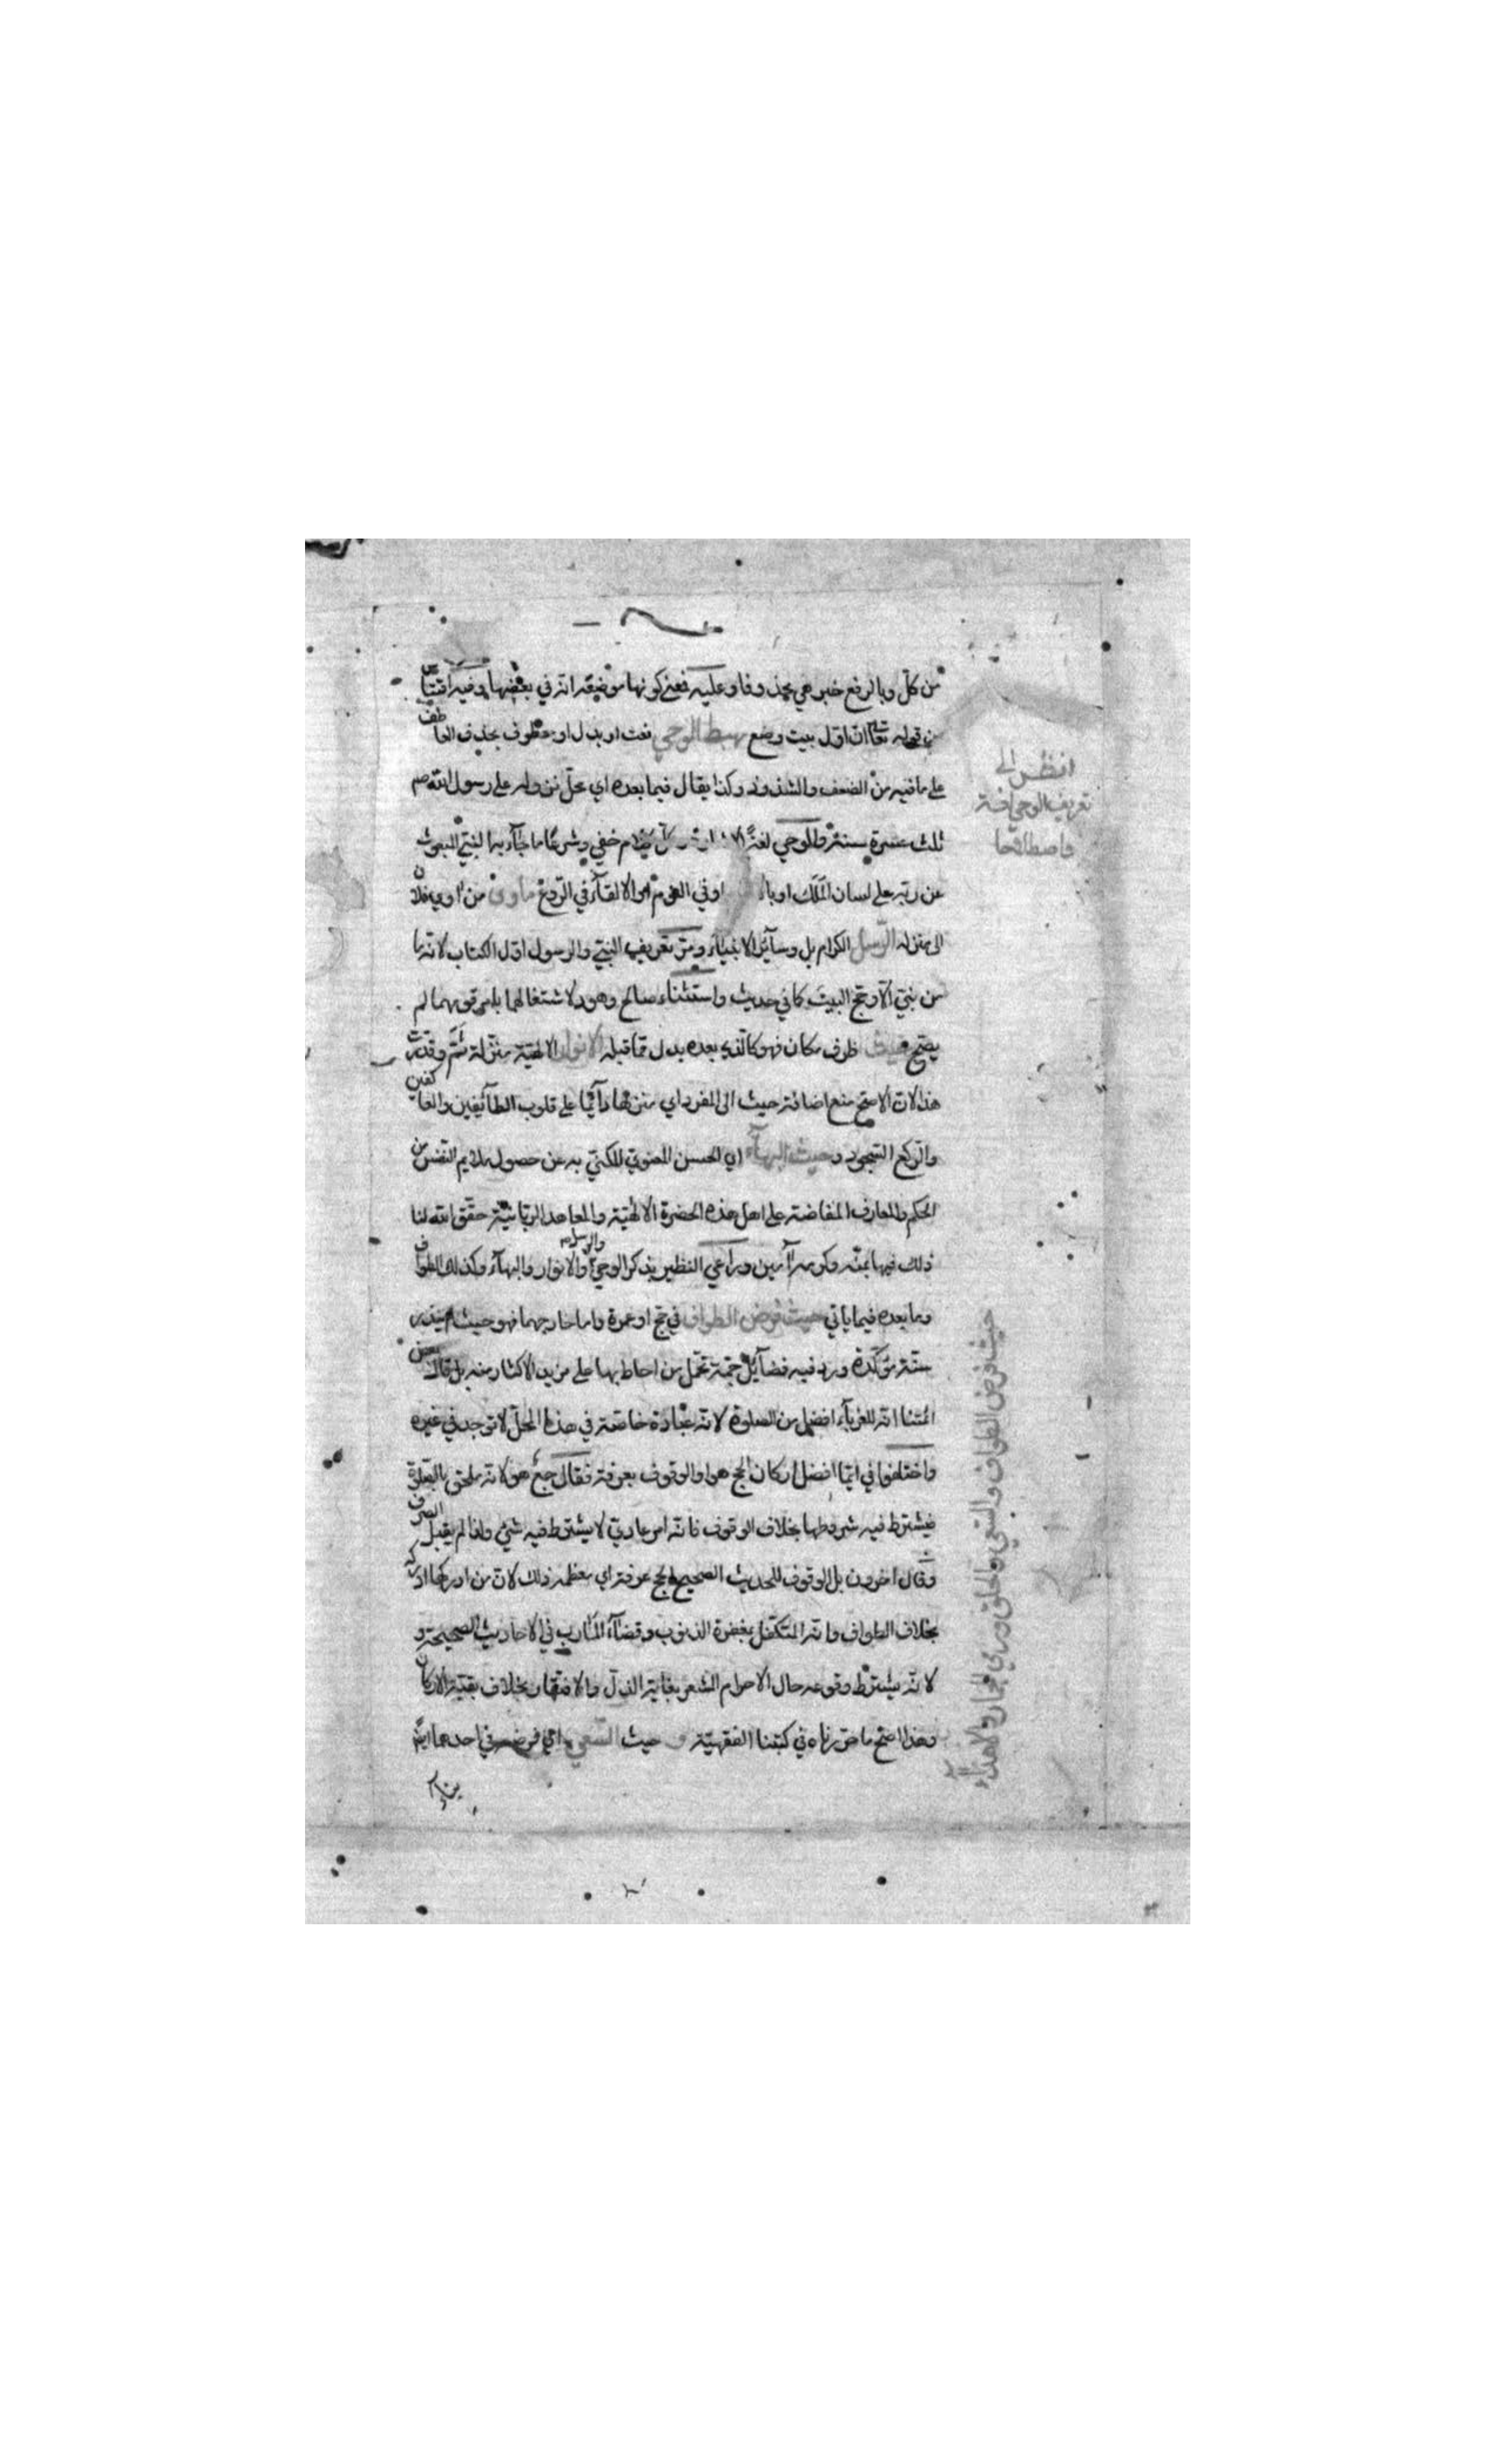 من كلّ وبالرفع خبر هي محذوفا وعليه فمعنى كونها موضعه انه في بعضها وفيه اقتباس
من قوله تعالى ان اوّل بيت وضع مهبط الوحي نعت او بدل او معطوف بحذف العاطف
على ما فيه من الضعف والشذوذ وكذا يقال فيما بعده اي محلّ نزوله على رسول الله صم
ثلث عشرة سنة والوحي لغةً كلام خفي وشرعًا ما جاء به النبيّ المبعوث
عن ربّه على لسان الملك او في النوم او الالقاء في الرّوع ماوى من اوى فلان
الى منزله الرّسل الكرام بل وسآئر الانبيآء ومرّ تعريف النبيّ والرسول اوّل الكتاب لانّه ما
من نبيّ الّا وحجّ البيت كما في حديث واستثناء صالح وهود لاشتغالهما بامر قومهما لم
يصحّ حيث ظرف مكان فهو كالّذي بعده بدل ممّا قبله الانوار الالهيّة منزلة ثَمَّ وقدّرت
هذا لانّ الاصحّ منع اضافة حيث الى المفرد اي منزلها دآئما على قلوب الطآئفين والعاكفين
والرّكع السّجود وحيث البهآء اي الحسن المعنويّ المكنّي به عن حصول ملايم النفس من
الحكم والمعارف المفاضة على اهل هذه الحضرة الالهيّة والمعاهد الربّانيّة حقّق الله لنا
ذلك فيها بمنّه وكرمه آمين وراعى النظير بذكر الوحي والرسل والانوار والبهآء وكذلك الطواف
وما بعده فيما ياتي حيث فرض الطواف في حجّ او عمرة واما خارجهما فهو حيث لم ينذر
سنّة مؤكّدة ورد فيه فضآئل جمّة تحمل من احاط بها على مزيد الاكثار منه بل قال بعض
ائمّتنا انّه للغربآء افضل من الصلوة لانّه عبادة خاصّة في هذا المحلّ لا توجد في غيره
واختلفوا في ايّما افضل اركان الحج هو او الوقوف بعرفة فقال جمعٌ هو لانّه ملحق بالصّلوة
فيشترط فيه شروطها بخلاف الوقوف فانّه امر عاديّ لا يشترط فيه شئ ولذا لم يقبل الصرف
وقال اخرون بل الوقوف للحديث الصحيح الحج عرفة اي معظمه ذلك لانّ من ادركها ادركه
بخلاف الطواف وانّه المتكفّل بمغفرة الذنوب وقضآء المآرب في الاحاديث الصحيحة و
لانّه يشترط وقوعه حال الاحرام المشعر بغاية الذلّ والافتقار بخلاف بقيّة الاركان
وهذا اصحّ ما حرّرناه في كتبنا الفقهيّة و حيث السّعي اي فرضه في احدهما ايضًا
انظر الى
تعريف الوحي لغة
واصطلاحًا
حيث فرض الطواف والسّعي والحلق ورمي الجمار والاهداء